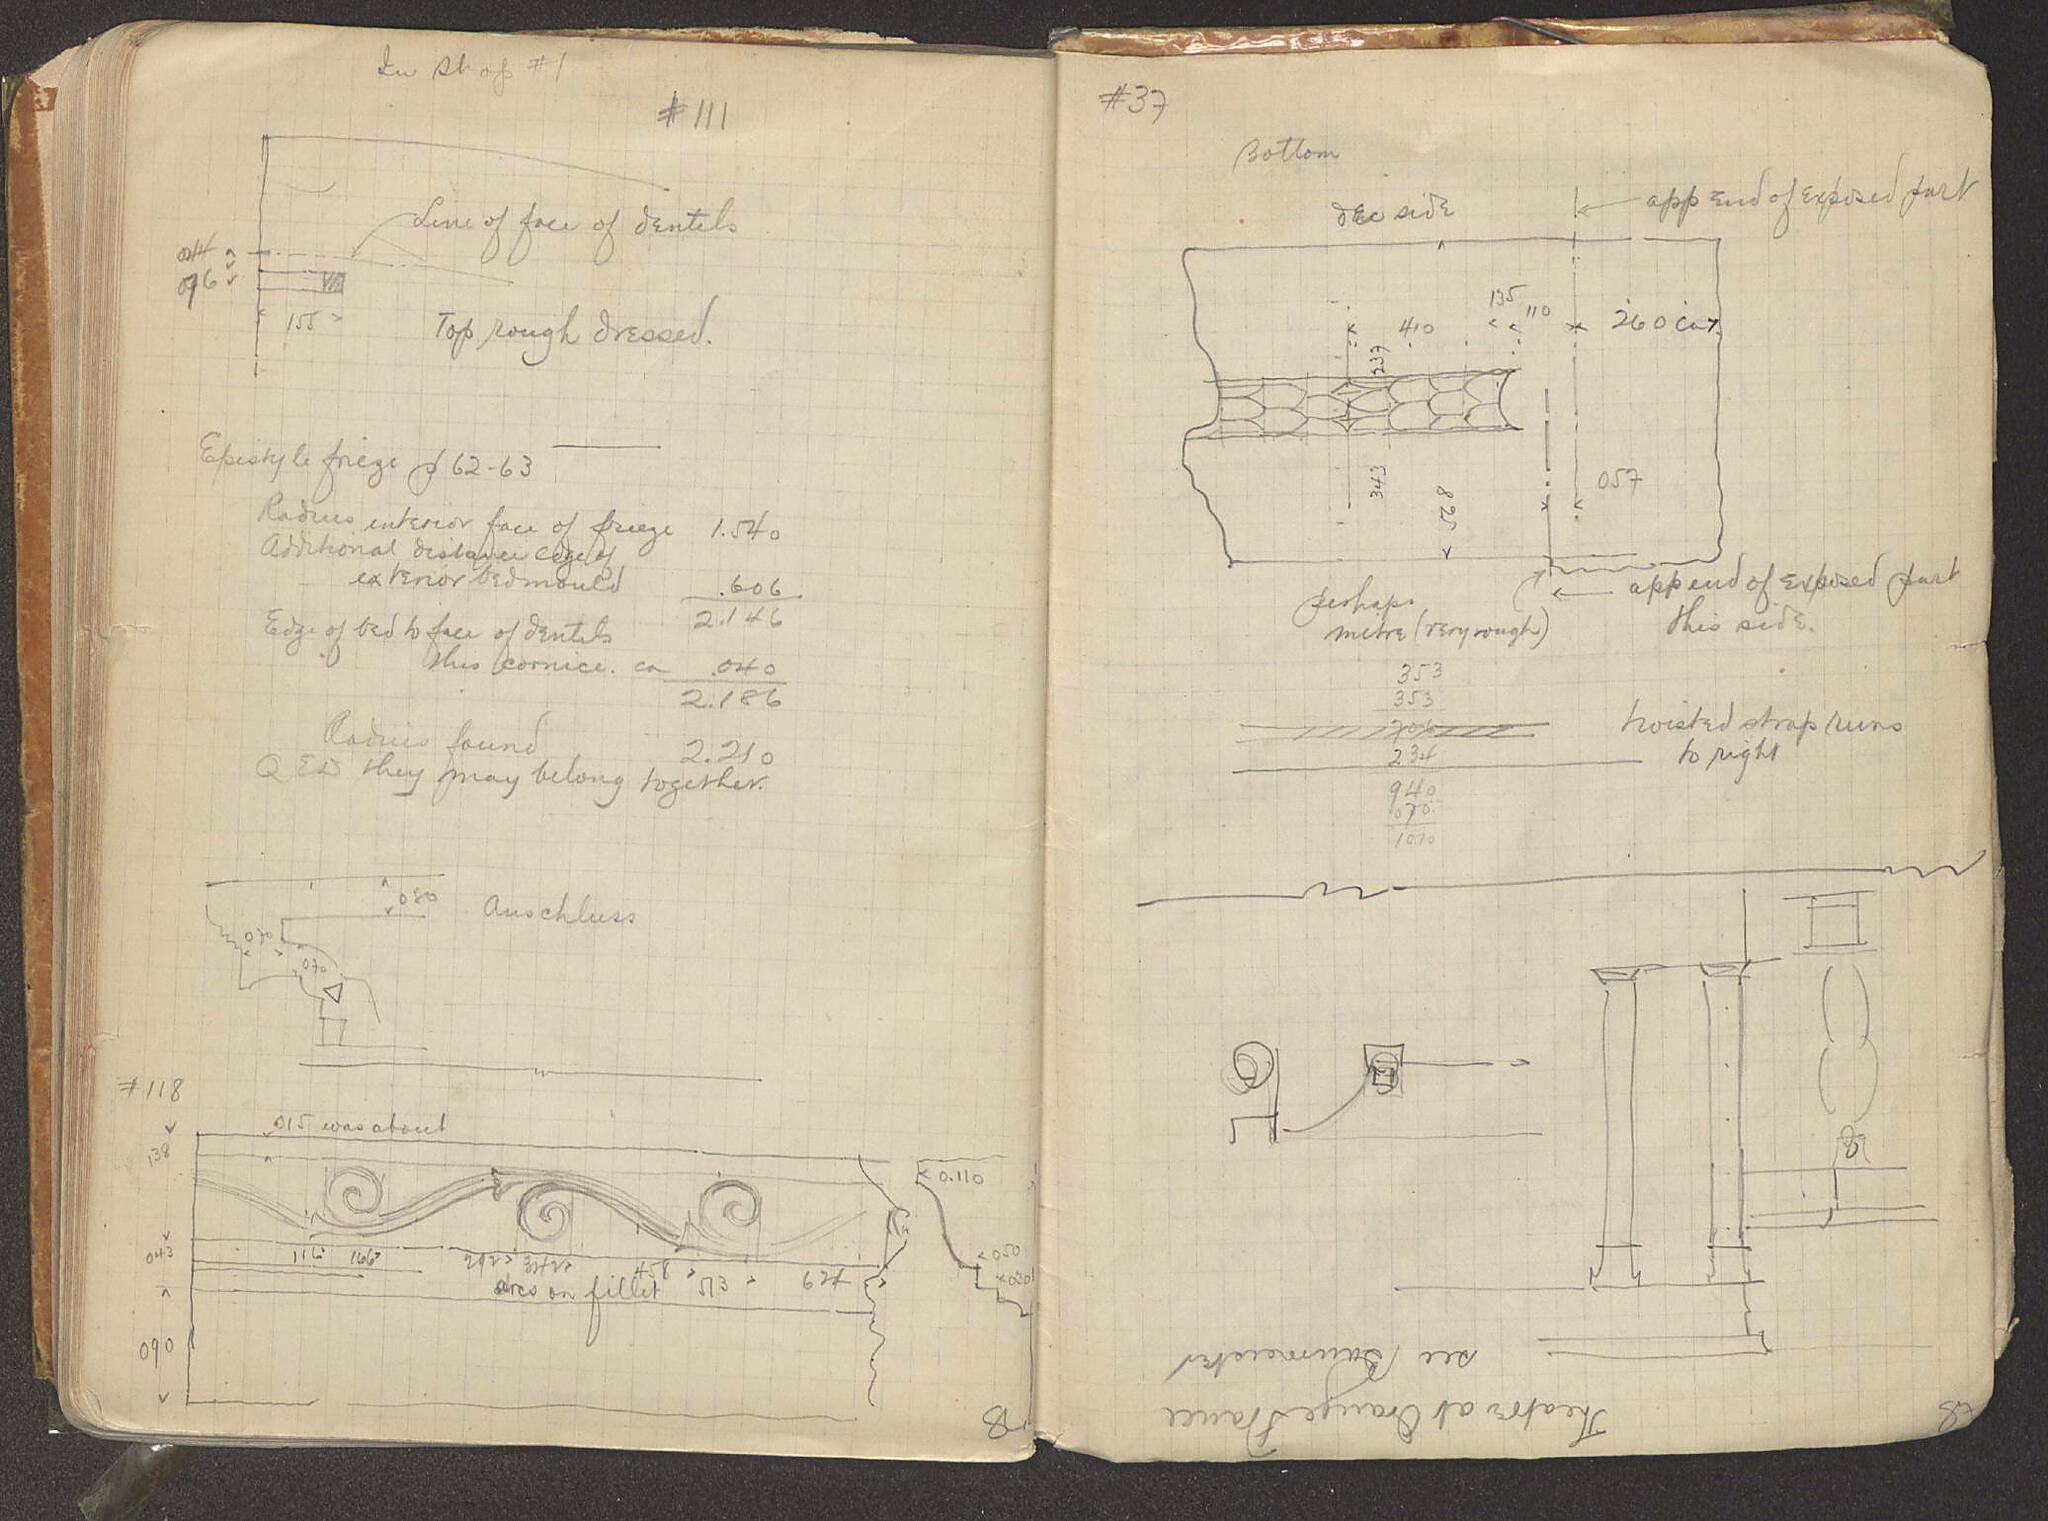 In Shop #1
#111
Line of face of dentels
014
096
155
Top rough dressed.
Epistyle frieze p 62-63
Radius interior face of frieze 1.540
Additional distance edge of
exterior bedmould .606
2.146
Edge of bed to face of dentels
this cornice. ca .040
2.186
Radius found 2.210
QED they may belong together.
080
Anschluss
070
#118
015 was about
138
0.110
043
116 166
458 513 624
050
030
arcs on fillet
090
#37
Bottom
dec side
app end of exposed part
135
110
410
260 ca
237
343
568
057
perhaps
metre (very rough)
app end of exposed part
this side.
353
353
234
twisted strap runs
to right
940
070
1010
see Baumeister
Theatre at Orange France